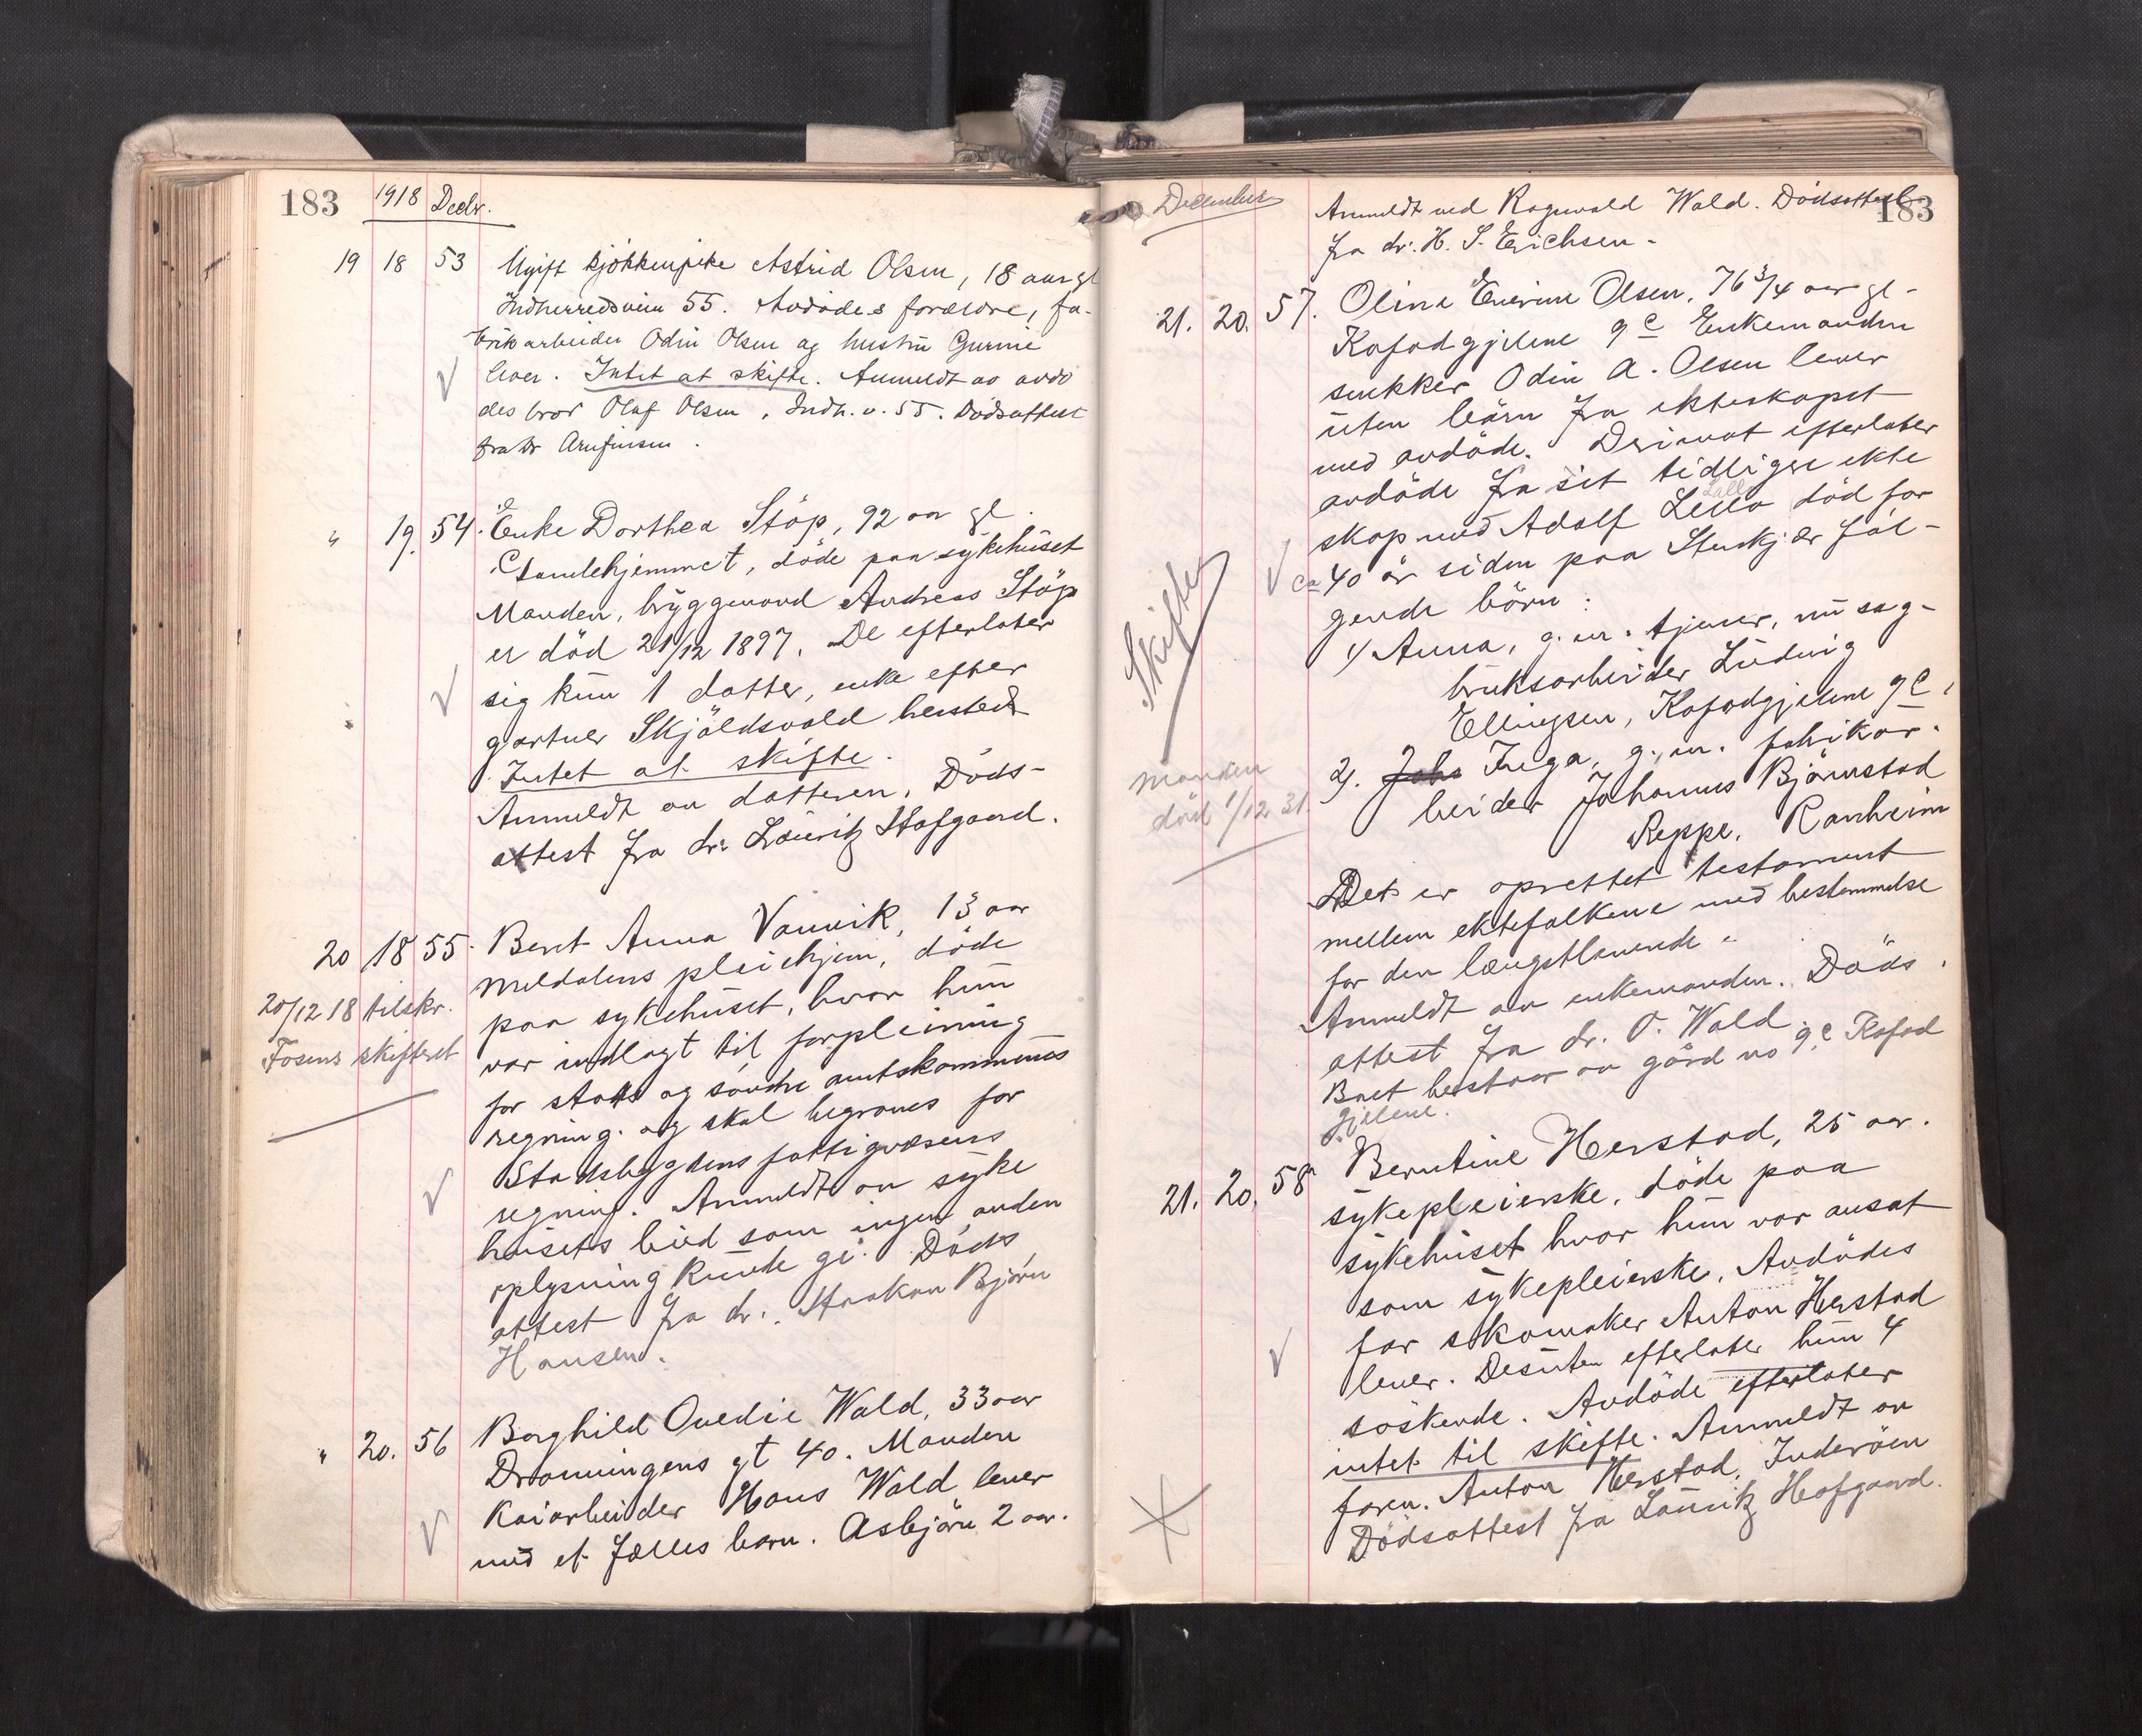 183 1918 Decbr.
19 18 53 Ugift kjøkkenpike Astrid Olsen, 18 aar gl
Indherredsveien 55. Avdødes forældre, fa-
brikarbeider Odin Olsen og hustru Gurine
lever. Intet at skifte. Anmeldt av avdø
des bror Olaf Olsen, Indh. v. 55. Dødsattest
fra Dr Arnfinsen.
" 19. 54. Enke Dorthea Støp, 92 aar gl.
Gamlehjemmet, døde paa sykehuset
Manden, bryggemand Andreas Støp
er död 21/12 1897. De efterlater
sig kun 1 datter, enke efter
gartner Skjöldsvold hersteds
Intet at skifte.
Anmeldt av datteren. Döds-
attest fra dr. Lauritz Hafgaard.
20 18 55. Beret Anna Vanvik, 13 aar
Meldalens pleiehjem, döde
paa sykehuset, hvor hun
var indlagt til forpleining
for stats og søndre amtskommunes
regning. og skal begraves for
Stadsbygdens fattigvæsens
regning. Anmeldt av syke
husets bud som ingen anden
oplysning kunde gi. Döds
attest fra dr. Haakon Bjørn
Hansen.
20/12 18 tilskr.
Fosens skifteret
" 20. 56 Borghild Ovedie Wald, 33 aar
Dronningens gt 40. Manden
Kaiarbeider Hans Wald lever
med et fælles barn. Asbjørn 2 aar.
December 183
Anmeldt ved Ragnvald Wald. Dödsattest
fra dr. H. S. Erichsen.
21. 20. 57. Oline Enerine Olsen, 76 3/4 aar gl.
Kafadgjelene 9c Enkemanden
snekker Odin A. Olsen lever
uten börn fra ekteskapet
med avdöde. Derimot efterlater
avdöde fra sit tidligere ekte
skap med Adolf Lello död for
ca 40 år siden paa Stenkjær föl-
gende börn:
1) Anna, g. m. tjener, nu sag-
bruksarbeider Ludvig
Ellingsen, Kafadgjelene 9c,
2). Johs Inga, g. m. fabrikar-
beider Johannes Bjørnstad
Reppe, Ranheim
Det er oprettet testament
mellem ektefolkene med bestemmelse
for den længstlevende.
Anmeldt av enkemanden. Döds
attest fra dr. O. Wald
Boet bestaar av gård no 9c Kafad
gjelene.
Skiftes
manden
död 1/12 31.
21. 20. 58 Berntine Herstad, 25 aar.
sykepleierske, döde paa
sykehuset hvor hun var ansat
som sykepleierske. Avdödes
far skomaker Anton Herstad
lever. Desuten efterlater hun 4
söskende. Avdöde efterlater
intet til skifte. Anmeldt av
faren. Anton Herstad, Inderöen
Dödsattest fra Lauritz Hafgaard.